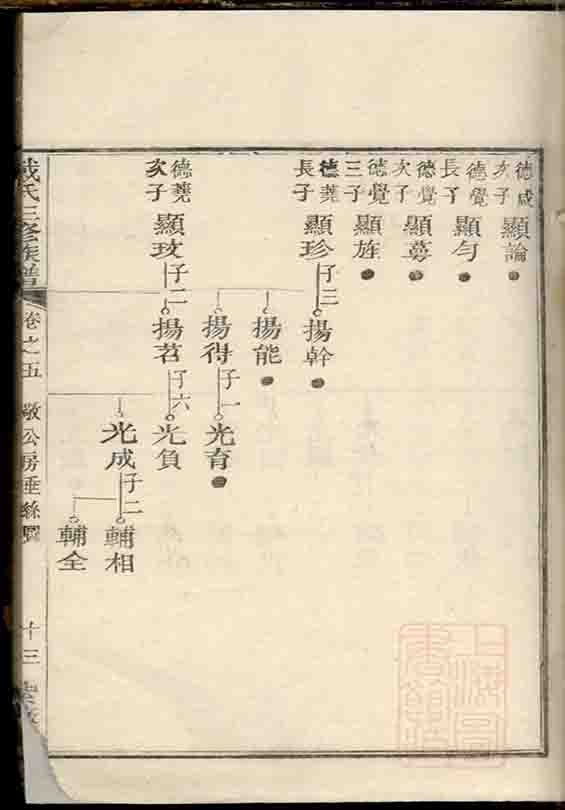 德成次子 顯論
德覺長子 顯勻
德覺次子 顯蕚
德覺三子 顯旌
德蕘長子 顯珍 子三 揚幹
揚能
揚得 子一 光育
德蕘次子 顯玟 子二 揚苕 子六 光負
光成 子二 輔相
輔全
戴氏三修族譜 卷之五 敬公房垂絲圖 十三
上海圖書館藏